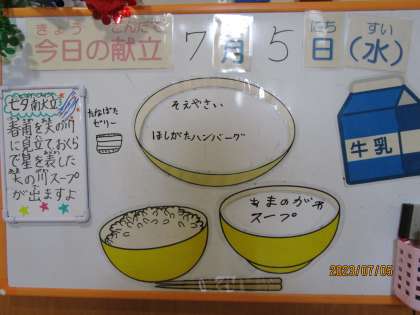 きょう こんだて
今日の献立
7月5日(水)
にち すい
七夕献立
春雨を天の川
に見立ておくら
で星を表した
天の川スープ
が出ますよ
たなばた
ゼリー
そえやさい
ほしがたハンバーグ
あまのがわ
スープ
牛乳
2023/07/05